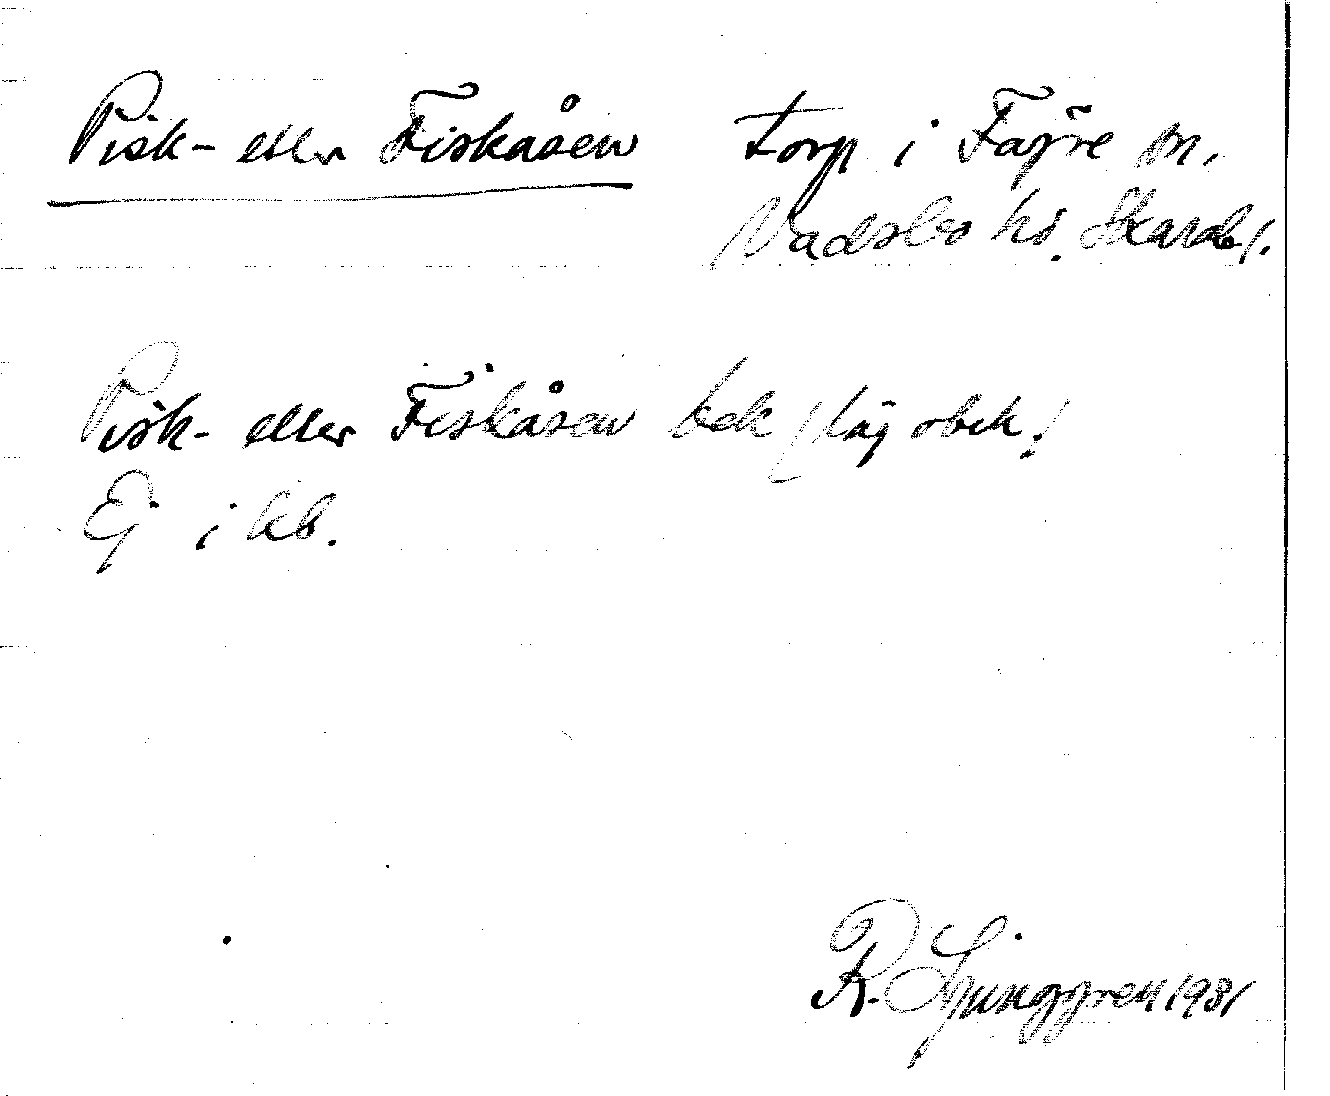 Pisk- eller Fiskåsen torp i Fägre sn.
Vadsbo hd. Skarab. l.
Pisk- eller Fiskåsen bek / läg obek!
Ej i kb.
R. Ljunggren 1931